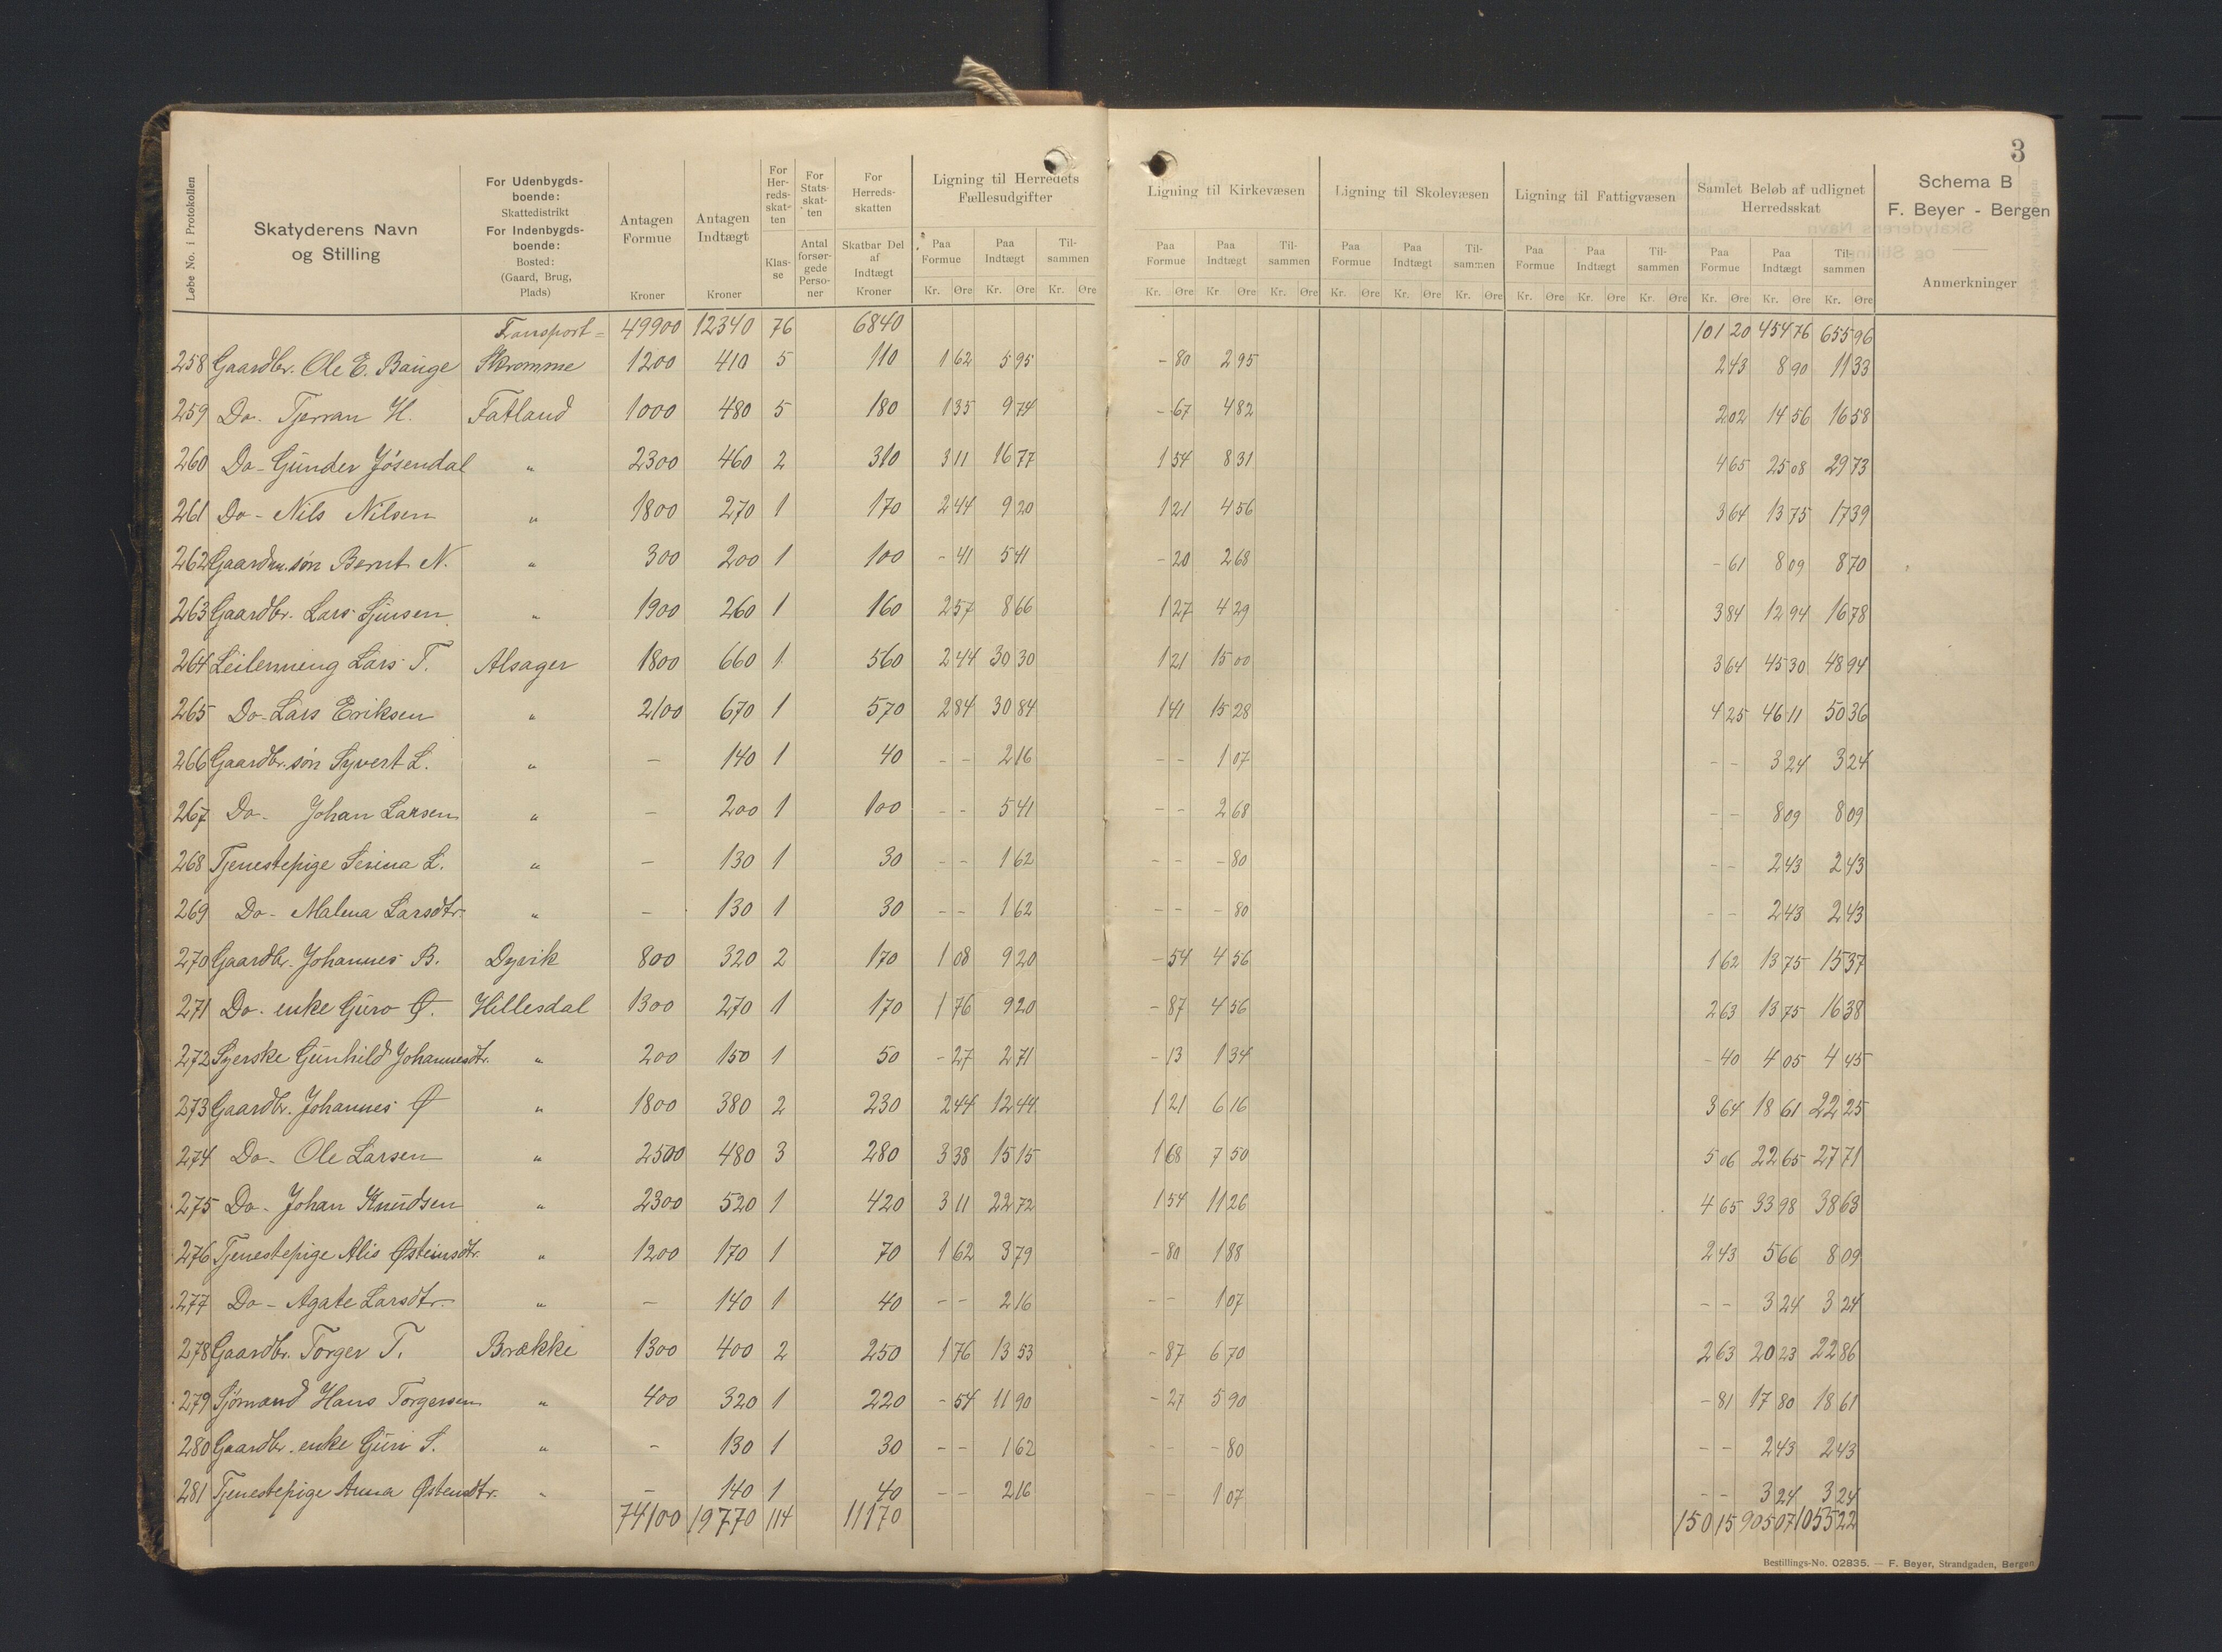 3
Løbe No. i Protokollen
Skatyderens Navn og Stilling
For Udenbygdsboende: Skattedistrikt For Indenbygdsboende: Bosted: (Gaard, Brug, Plads)
Antagen Formue Kroner
Antagen Indtægt Kroner
For Herredsskatten Klasse
For Statsskatten Antal forsørgede Personer
For Herredsskatten Skatbar Del af Indtægt Kroner
Ligning til Herredets Fællesudgifter
Paa Formue Paa Indtægt Tilsammen
Kr. Øre Kr. Øre Kr. Øre
Ligning til Kirkevæsen
Paa Formue Paa Indtægt Tilsammen
Kr. Øre Kr Øre Kr. Øre
Ligning til Skolevæsen
Paa Formue Paa Indtægt Tilsammen
Kr. Øre Kr. Øre Kr. Øre
Ligning til Fattigvæsen
Paa Formue Paa Indtægt Tilsammen
Kr. Øre Kr. Øre Kr. Øre
Samlet Beløb af udlignet Herredsskat
Paa Formue Paa Indtægt Tilsammen
Kr. Øre Kr. Øre Kr. Øre
Schema B
F. Beyer - Bergen
Anmerkninger
Transport = 49900 12340 76 6840 101 20 454 76 655 96
258 Gaardbr. Ole E. Bauge Skromme 1200 410 5 110 1 62 5 95 - 80 2 95 2 43 8 90 11 33
259 Do. Tjerran H. Fatland 1000 480 5 180 1 35 9 74 - 67 4 82 2 02 14 56 16 58
260 Do - Gunder Jøsendal " 2300 460 2 310 3 11 16 77 1 54 8 31 4 65 25 08 29 73
261 Do - Nils Nilsen " 1800 270 1 170 2 44 9 20 1 21 4 56 3 64 13 75 17 39
262 Gaardm. søn Bernt N. " 300 200 1 100 - 41 5 41 - 20 2 68 - 61 8 09 8 70
263 Gaardbr. Lars Sjursen " 1900 260 1 160 2 57 8 66 1 27 4 29 3 84 12 94 16 78
264 Leilenning Lars T. Alsager 1800 660 1 560 2 44 30 30 1 21 15 00 3 64 45 30 48 94
265 Do - Lars Eriksen " 2100 670 1 570 2 84 30 84 1 41 15 28 4 25 46 11 50 36
266 Gaardbr. søn Syvert L. " - 140 1 40 - - 2 16 - - 1 07 - - 3 24 3 24
267 Do - Johan Larsen " - 200 1 100 - - 5 41 - - 2 68 - - 8 09 8 09
268 Tjenestepige Serina L. " - 130 1 30 - - 1 62 - - - 80 - - 2 43 2 43
269 Do - Malena Larsdtr. " - 130 1 30 - - 1 62 - - - 80 - - 2 43 2 43
270 Gaardbr. Johannes B. Dyvik 800 320 2 170 1 08 9 20 - 54 4 56 1 62 13 75 15 37
271 Do - enke Guro Ø. Hillesdal 1300 270 1 170 1 76 9 20 - 87 4 56 2 63 13 75 16 38
272 Syerske Gunhild Johannesdtr. " 200 150 1 50 - 27 2 71 - 13 1 34 - 40 4 05 4 45
273 Gaardbr. Johannes Ø " 1800 380 2 230 2 44 12 44 1 21 6 16 3 64 18 61 22 25
274 Do - Ole Larsen " 2500 480 3 280 3 38 15 15 1 68 7 50 5 06 22 65 27 71
275 Do - Johan Knudsen " 2300 520 1 420 3 11 22 72 1 54 11 26 4 65 33 98 38 63
276 Tjenestepige Alis Østeinsdtr. " 1200 170 1 70 1 62 3 79 - 80 1 88 2 43 5 66 8 09
277 Do - Agate Larsdtr. " - 140 1 40 - - 2 16 - - 1 07 - - 3 24 3 24
278 Gaardbr. Torger T. Brække 1300 400 2 250 1 76 13 53 - 87 6 70 2 63 20 23 22 86
279 Sjømand Hans Torgersen " 400 320 1 220 - 54 11 90 - 27 5 90 - 81 17 80 18 61
280 Gaardbr. enke Guri S. " - 130 1 30 - - 1 62 - - - 80 - - 2 43 2 43
281 Tjenestepige Anna Østensdtr. " - 140 1 40 - - 2 16 - - 1 07 - - 3 24 3 24
74100 19770 114 11170 150 15 905 07 1055 22
Bestillings-No. 02835. — F. Beyer, Strandgaden, Bergen